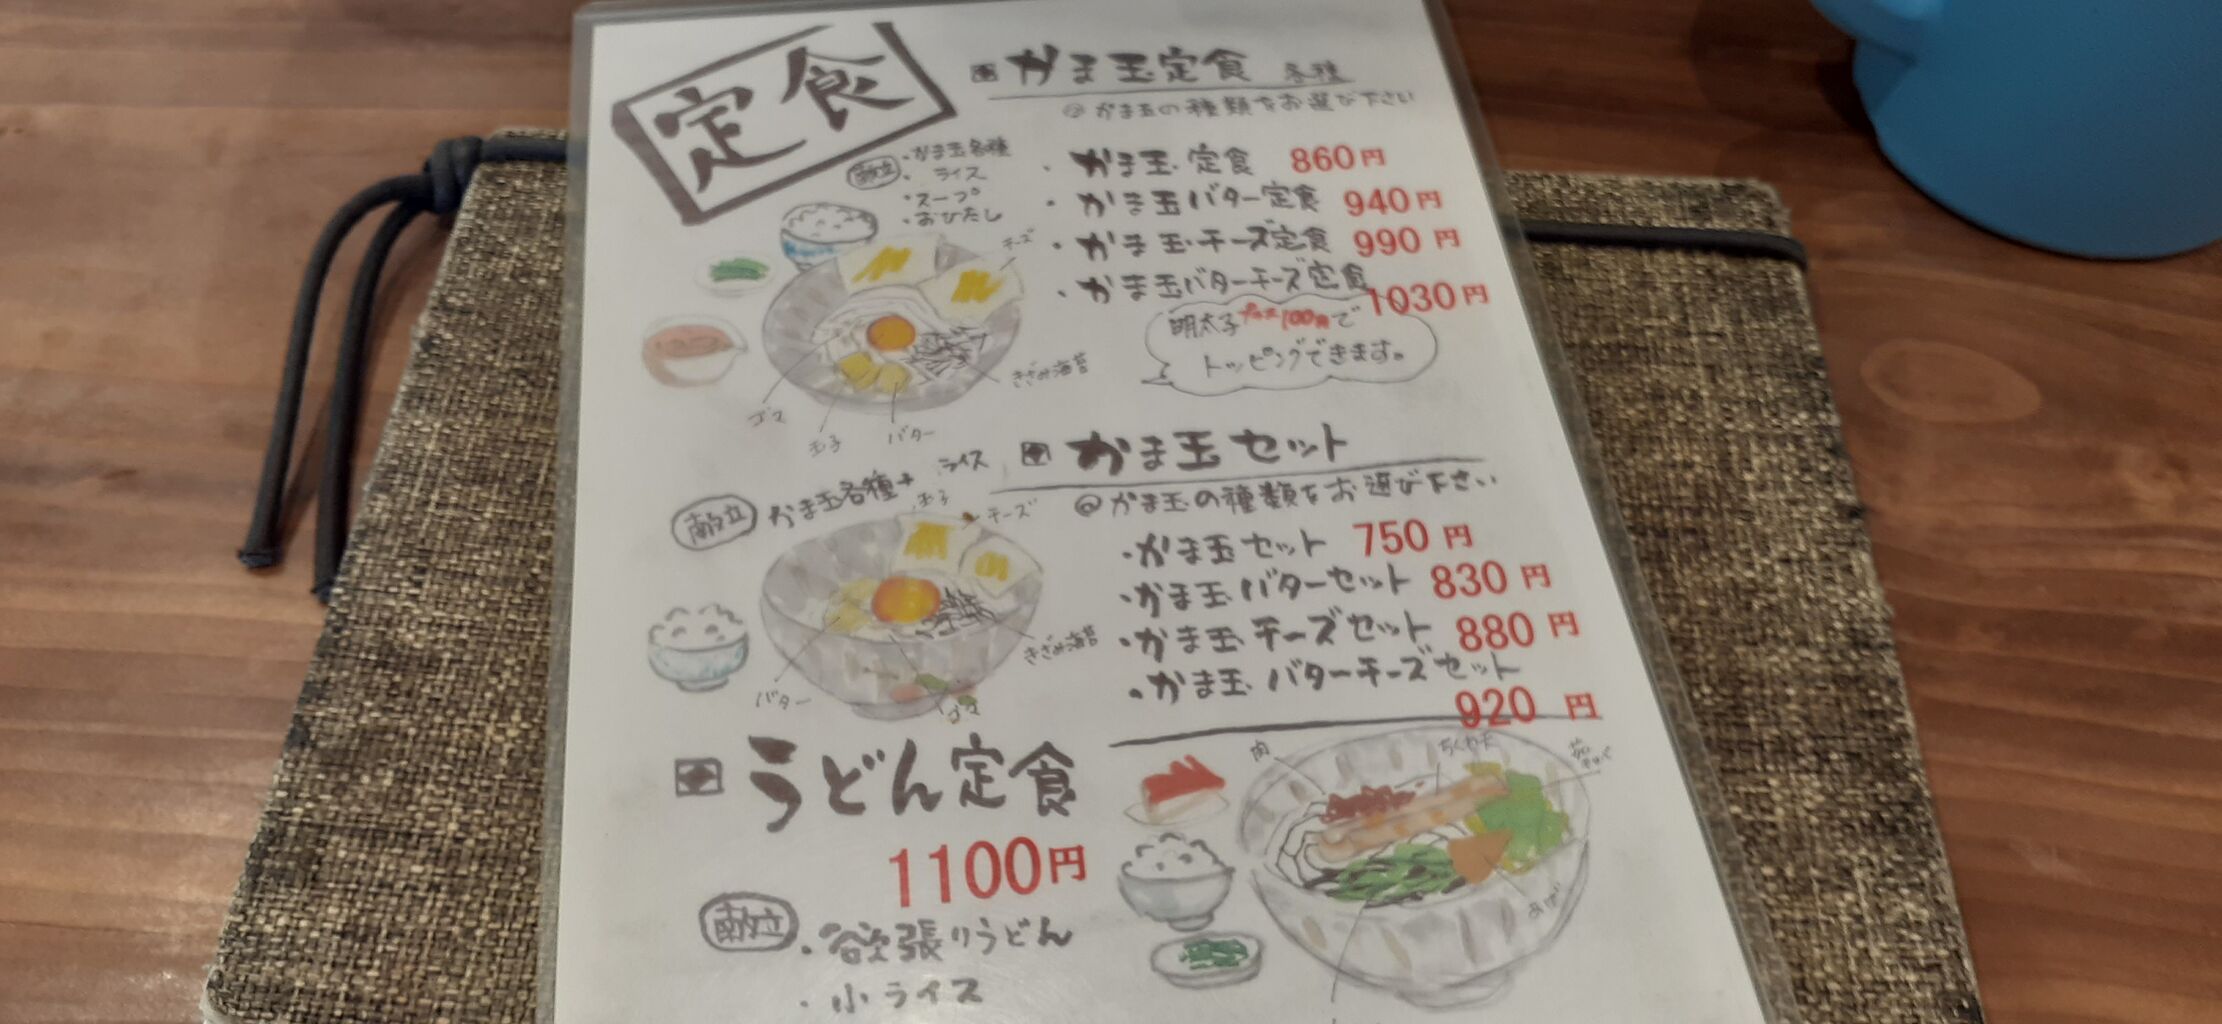 定食
献立
・かま玉各種
・ライス
・スープ
・おひたし
チーズ
きざみ海苔
ゴマ
玉子
バター
かま玉定食 各種
@かま玉の種類をお選び下さい
・かま玉定食 860円
・かま玉バター定食 940円
・かま玉チーズ定食 990円
・かま玉バターチーズ定食 1030円
明太子プラス100円で
トッピングできます。
かま玉セット
@かま玉の種類をお選び下さい
献立 かま玉各種+ライス
玉子
チーズ
きざみ海苔
バター
ゴマ
・かま玉セット 750円
・かま玉バターセット 830円
・かま玉チーズセット 880円
・かま玉バターチーズセット
920円
うどん定食
1100円
献立
・欲張りうどん
・小ライス
肉
ちくわ天
あげ